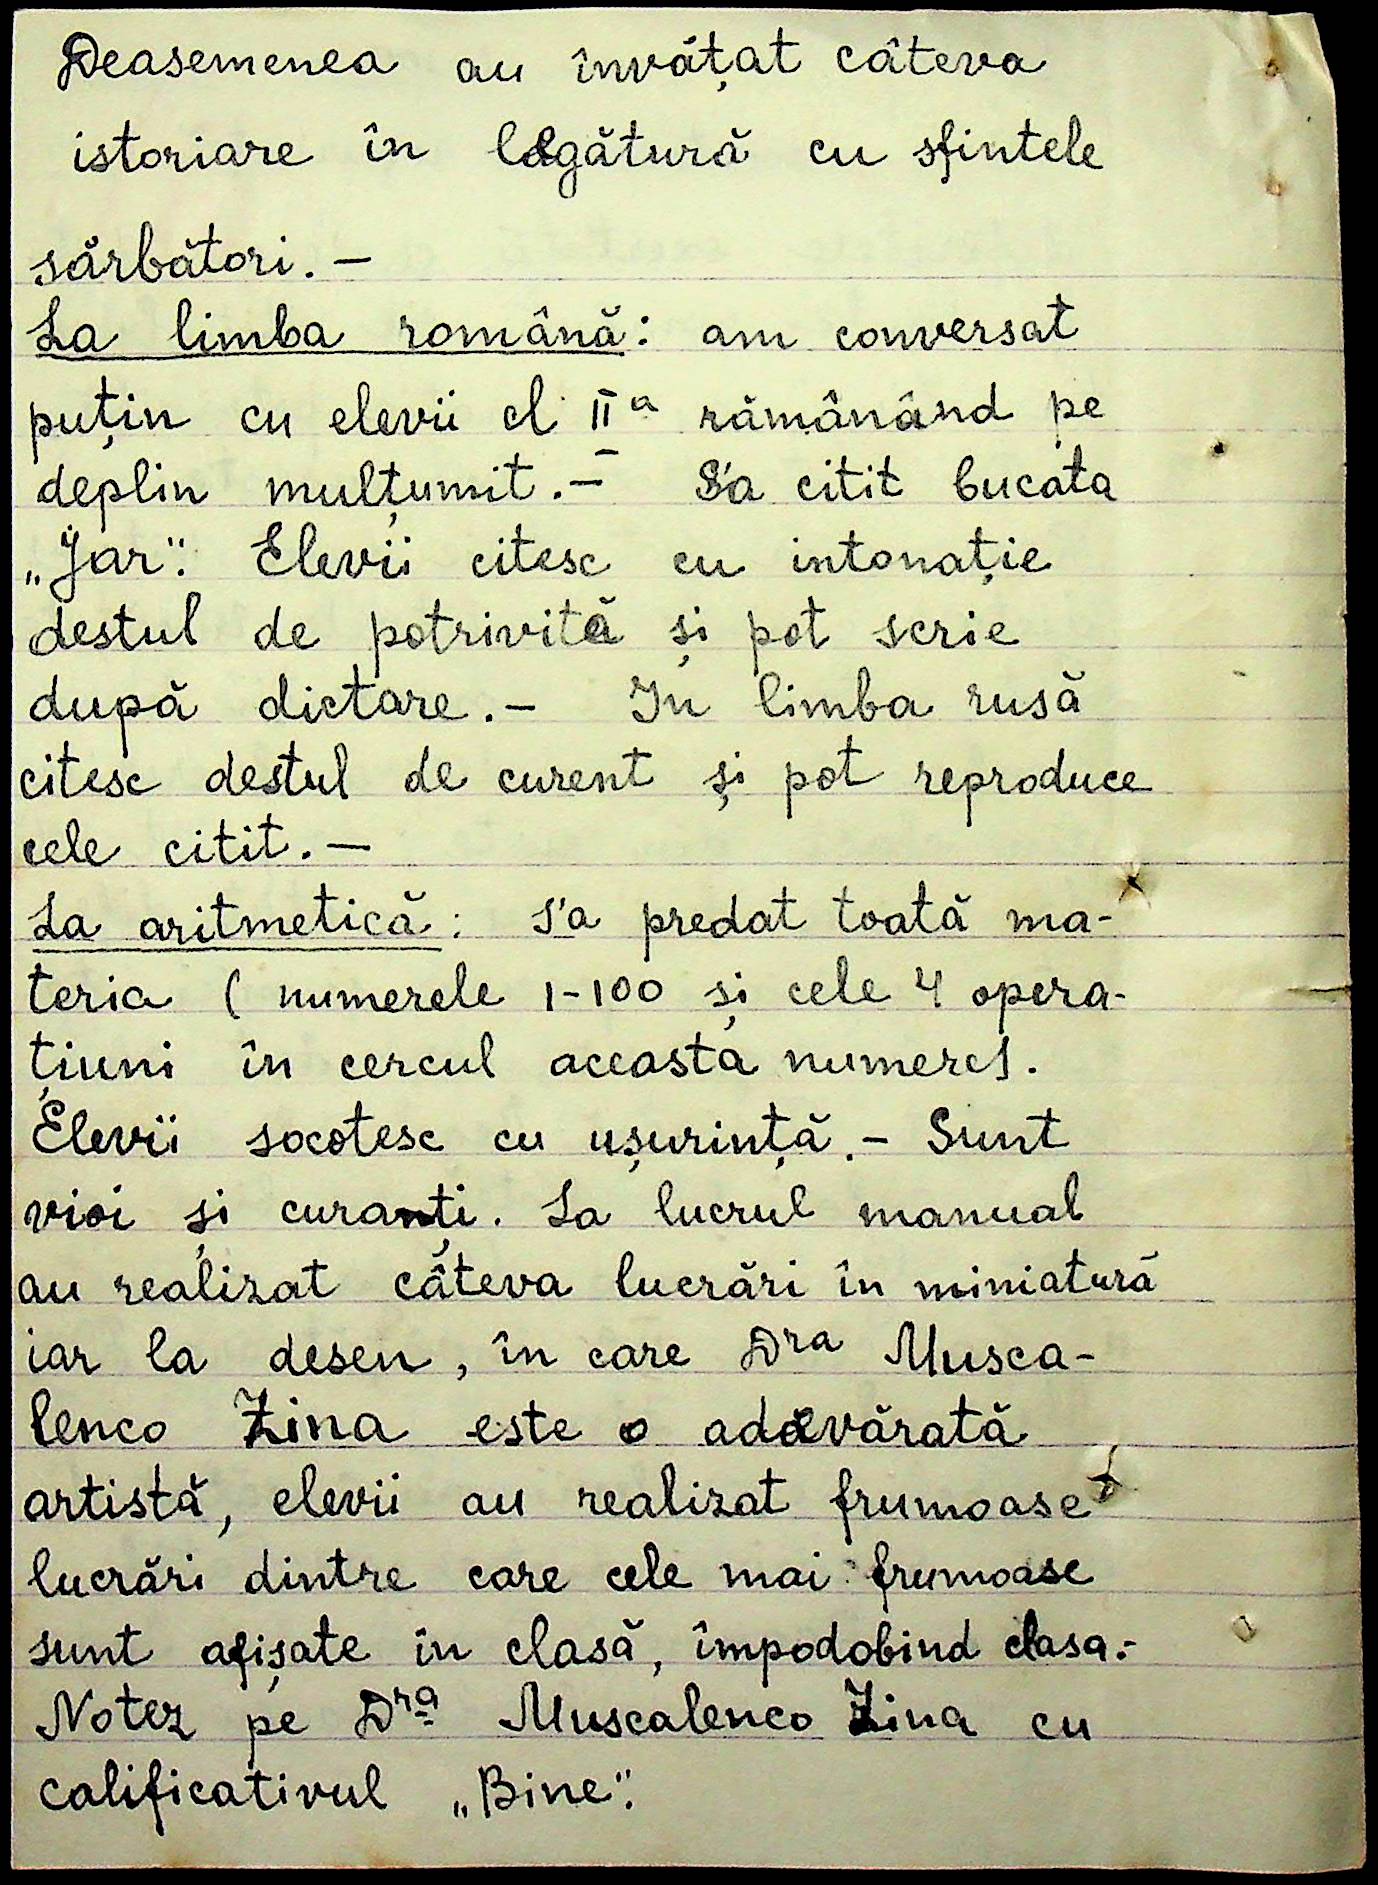 Deasemenea au învățat câteva
istorioare în legătură cu sfintele
sărbători. –
La limba română: am conversat
puțin cu elevii cl. II a rămânând pe
deplin mulțumit. – S'a citit bucata
„Jar”. Elevii citesc cu intonație
destul de potrivită și pot scrie
după dictare. – În limba rusă
citesc destul de curent și pot reproduce
cele citit. –
La aritmetică: s'a predat toată ma-
teria (numerele 1-100 și cele 4 opera-
țiuni în cercul aceasta numere).
Elevii socotesc cu ușurință. – Sunt
vioi și curanți. La lucrul manual
au realizat câteva lucrări în miniatură
iar la desen, în care Dra Musca-
lenco Zina este o adevărată
artistă, elevii au realizat frumoase
lucrări dintre care cele mai frumoase
sunt afișate în clasă, împodobind clasa. -
Notez pe Dra Muscalenco Zina cu
calificativul „Bine”.